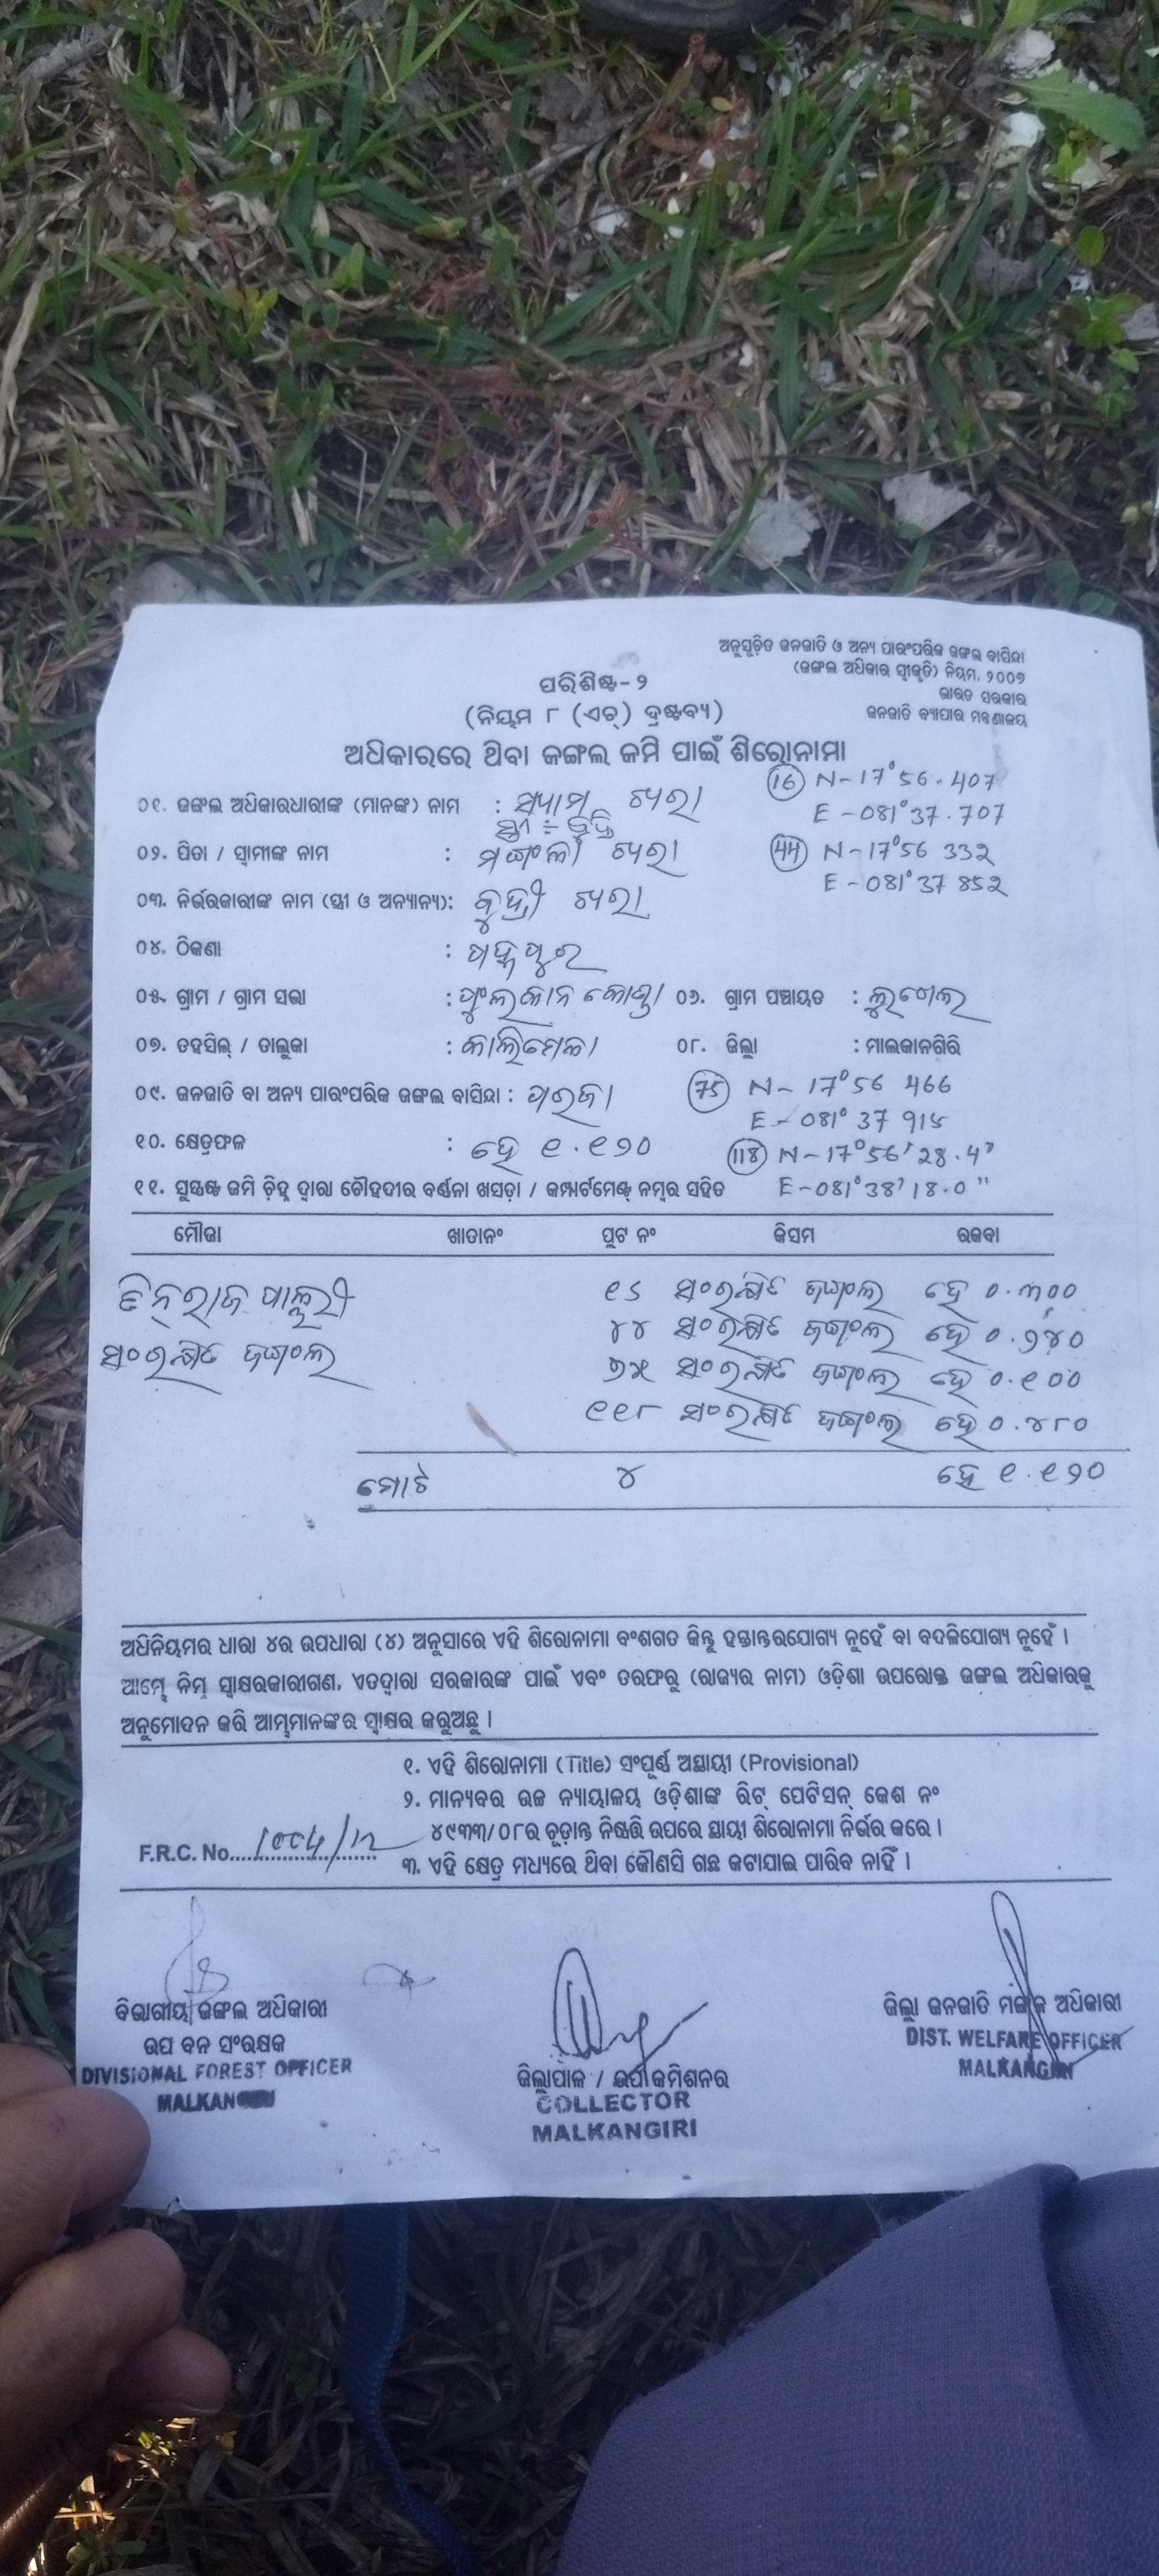 ଅନୁସୂଚିତ ଜନଜାତି ଓ ଅନ୍ୟ ପାରଂପରିକ ଜଙ୍ଗଲ ବାସିନ୍ଦା
(ଜଙ୍ଗଲ ଅଧିକାର ସ୍ୱୀକୃତି) ନିୟମ, ୨୦୦୭
ଭାରତ ସରକାର
ଜନଜାତି ବ୍ୟାପାର ମନ୍ତ୍ରଣାଳୟ
ପରିଶିଷ୍ଟ-୨
(ନିୟମ ୮ (ଏଚ୍) ଦ୍ରଷ୍ଟବ୍ୟ)
ଅଧିକାରରେ ଥିବା ଜଙ୍ଗଲ ଜମି ପାଇଁ ଶିରୋନାମା
16 N-17°56.407
୦୧. ଜଙ୍ଗଲ ଅଧିକାରଧାରୀଙ୍କ (ମାନଙ୍କ) ନାମ :
E-081°37.707
ସ୍ତ୍ରୀ ÷
୦୨. ପିତା / ସ୍ୱାମୀଙ୍କ ନାମ :
44 N-17°56 332
E-081°37 852
୦୩. ନିର୍ଭରକାରୀଙ୍କ ନାମ (ସ୍ତ୍ରୀ ଓ ଅନ୍ୟାନ୍ୟ):
୦୪. ଠିକଣା :
୦୫. ଗ୍ରାମ / ଗ୍ରାମ ସଭା : ୦୬. ଗ୍ରାମ ପଞ୍ଚାୟତ :
୦୭. ତହସିଲ୍ / ତାଲୁକା : କାଲିମେଳା ୦୮. ଜିଲ୍ଲା : ମାଲକାନଗିରି
୦୯. ଜନଜାତି ବା ଅନ୍ୟ ପାରଂପରିକ ଜଙ୍ଗଲ ବାସିନ୍ଦା : ପରଜା 75 N-17°56 466
E-081°37 915
୧୦. କ୍ଷେତ୍ରଫଳ : ହେ ୧.୧୨୦ 118 N-17°56'28.4"
୧୧. ସୁସ୍ପଷ୍ଟ ଜମି ଚିହ୍ନ ଦ୍ୱାରା ଚୌହଦୀର ବର୍ଣ୍ଣନା ଖସଡ଼ା / କମ୍ପାର୍ଟମେଣ୍ଟ ନମ୍ବର ସହିତ E-081°38'18.0"
ମୌଜା ଖାତାନଂ ପ୍ଲଟ ନଂ କିସମ ରକବା
୧୬ ସଂରକ୍ଷିତ ଜଙ୍ଗଲ ହେ ୦.୩୦୦
୪୪ ସଂରକ୍ଷିତ ଜଙ୍ଗଲ ହେ ୦.୨୪୦
ସଂରକ୍ଷିତ ଜଙ୍ଗଲ ୭୫ ସଂରକ୍ଷିତ ଜଙ୍ଗଲ ହେ ୦.୧୦୦
୧୧୮ ସଂରକ୍ଷିତ ଜଙ୍ଗଲ ହେ ୦.୪୮୦
ମୋଟ ୪ ହେ ୧.୧୨୦
ଅଧିନିୟମର ଧାରା ୪ର ଉପଧାରା (୪) ଅନୁସାରେ ଏହି ଶିରୋନାମା ବଂଶଗତ କିନ୍ତୁ ହସ୍ତାନ୍ତରଯୋଗ୍ୟ ନୁହେଁ ବା ବଦଳିଯୋଗ୍ୟ ନୁହେଁ ।
ଆମ୍ଭେ ନିମ୍ନ ସ୍ୱାକ୍ଷରକାରୀଗଣ, ଏତଦ୍ୱାରା ସରକାରଙ୍କ ପାଇଁ ଏବଂ ତରଫରୁ (ରାଜ୍ୟର ନାମ) ଓଡ଼ିଶା ଉପରୋକ୍ତ ଜଙ୍ଗଲ ଅଧିକାରକୁ
ଅନୁମୋଦନ କରି ଆମ୍ଭମାନଙ୍କର ସ୍ୱାକ୍ଷର କରୁଅଛୁ ।
୧. ଏହି ଶିରୋନାମା (Title) ସଂପୂର୍ଣ୍ଣ ଅସ୍ଥାୟୀ (Provisional)
୨. ମାନ୍ୟବର ଉଚ୍ଚ ନ୍ୟାୟାଳୟ ଓଡ଼ିଶାଙ୍କ ରିଟ୍ ପେଟିସନ୍ କେଶ ନଂ
୪୯୩୩/୦୮ର ଚୂଡ଼ାନ୍ତ ନିଷ୍ପତ୍ତି ଉପରେ ସ୍ଥାୟୀ ଶିରୋନାମା ନିର୍ଭର କରେ ।
F.R.C. No.
୩. ଏହି କ୍ଷେତ୍ର ମଧ୍ୟରେ ଥିବା କୌଣସି ଗଛ କଟାଯାଇ ପାରିବ ନାହିଁ ।
ବିଭାଗୀୟ ଜଙ୍ଗଲ ଅଧିକାରୀ
ଉପ ବନ ସଂରକ୍ଷକ
DIVISIONAL FOREST OFFICER
ଜିଲ୍ଲାପାଳ / ଉପ କମିଶନର
COLLECTOR
MALKANGIRI
ଜିଲ୍ଲା ଜନଜାତି ମଙ୍ଗଳ ଅଧିକାରୀ
DIST. WELFARE OFFICER
MALKANGIRI